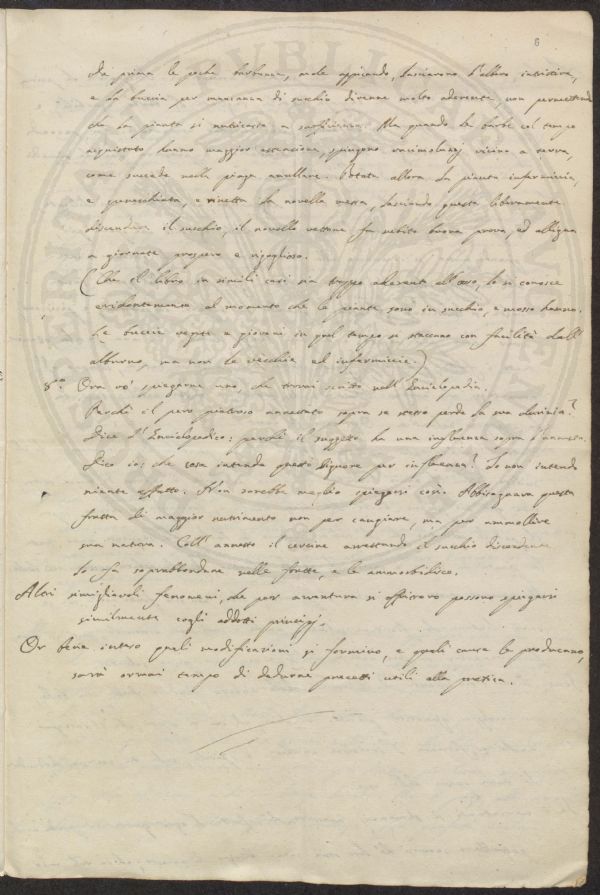 6
da prima le poche barbane, male appicando, lasciavano l'albero intristire,
e la buccia per mancanza di succhio divenne molto aderente, non permettendo
che la pianta si nutricasse a sufficienza. Ma quando le barbe col tempo
acquistato hanno maggior estensione, spingono vicino a terra,
come succede nella piaga anullare. Potata allora la pianta infermiccia,
e invecchiata, e rimetta la novella messa, lasciando questa liberamente
discendere il succhio, il novello vettone fa subito buona prova, ed allegna
a giornate prospero e rigoglioso.
(Che il libro in simili casi sia troppo aderente all'osso, lo si conosce
evidentemente al momento che le piante sono in succhio, e mosse hanno.
Le buccie vegete e giovani in quel tempo si staccano con facilità dall'
alburno, ma non le vecchie ed infermiccie.)
8.º Ora vo' spiegarne uno, che trovai scritto nell'Enciclopedia.
Perchè il pero pietroso annestato sopra se stesso perde la sua durizia?
Dice l'Enciclopedico: perchè il suggetto ha una influenza sopra l'annesto.
Dico io: che cosa intende questo Signore per influenza? Io non intendo
niente affatto. Non sarebbe meglio spiegarsi così. Abbisognava questa
frutta di maggior nutrimento non per cangiare, ma per ammollire
sua natura. Coll'annesto il cercine arrestando il succhio discendente
lo fa soprabbondare nelle frutta, e le ammorbidisce.
Altri simiglievoli fenomeni, che per avventura si offrissero possono spiegarsi
similmente cogli addotti principj.
Or bene inteso quali modificazioni si formino, e quali cause le producano,
sarà ormai tempo di dedurne precetti utili alla pratica.